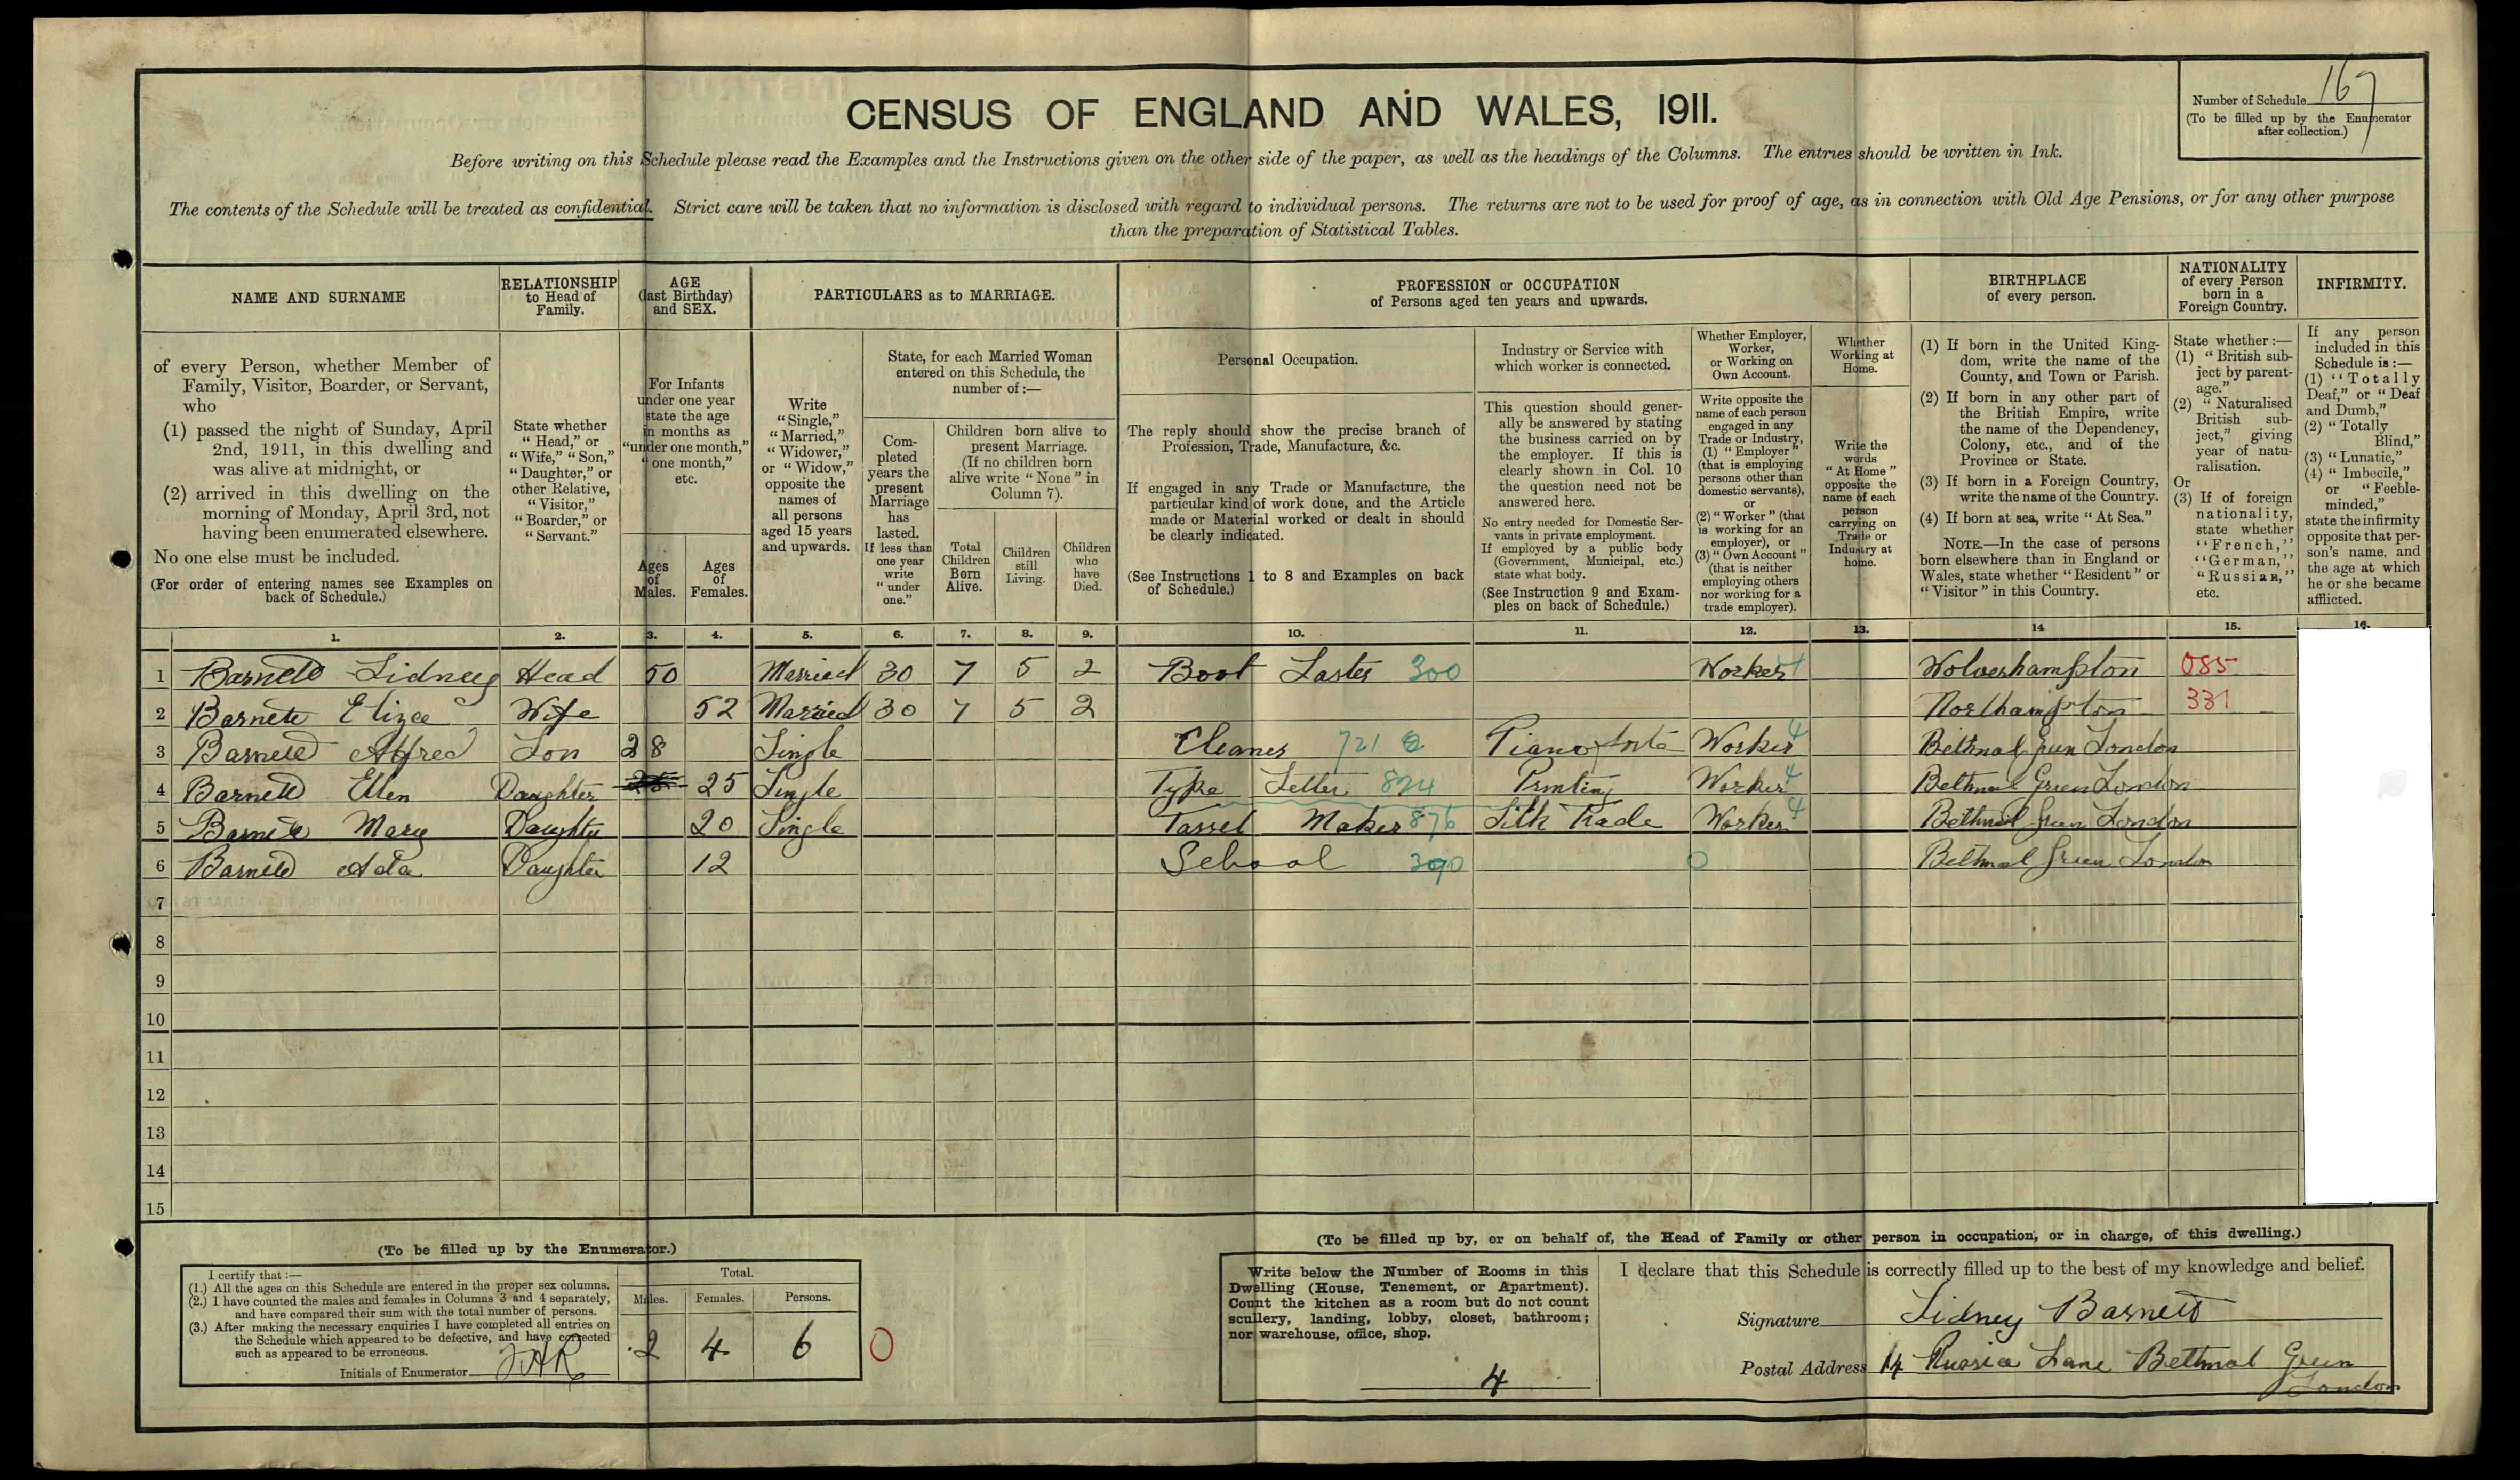 Number of Schedule 167
(To be filled up by the Enumerator
after collection.)
CENSUS OF ENGLAND AND WALES, 1911.
Before writing on this Schedule please read the Examples and the Instructions given on the other side of the paper, as well as the headings of the Columns. The entries should be written in Ink.
The contents of the Schedule will be treated as confidential. Strict care will be taken that no information is disclosed with regard to individual persons. The returns are not to be used for proof of age, as in connection with Old Age Pensions, or for any other purpose
than the preparation of Statistical Tables.
NAME AND SURNAME
of every Person, whether Member of
Family, Visitor, Boarder, or Servant,
who
(1) passed the night of Sunday, April
2nd, 1911, in this dwelling and
was alive at midnight, or
(2) arrived in this dwelling on the
morning of Monday, April 3rd, not
having been enumerated elsewhere.
No one else must be included.
(For order of entering names see Examples on
back of Schedule.)
RELATIONSHIP
to Head of
Family.
State whether
"Head," or
"Wife," "Son,"
"Daughter," or
other Relative,
"Visitor,"
"Boarder," or
"Servant."
AGE
(last Birthday)
and SEX.
For Infants
under one year
state the age
in months as
"under one month,"
"one month,"
etc.
Ages
of
Males.
Ages
of
Females.
PARTICULARS as to MARRIAGE.
Write
"Single,"
"Married,"
"Widower,"
or "Widow,"
opposite the
names of
all persons
aged 15 years
and upwards.
State, for each Married Woman
entered on this Schedule, the
number of :—
Com-
pleted
years the
present
Marriage
has
lasted.
If less than
one year
write
"under
one."
Children born alive to
present Marriage.
(If no children born
alive write "None" in
Column 7).
Total
Children
Born
Alive.
Children
still
Living.
Children
who
have
Died.
PROFESSION or OCCUPATION
of Persons aged ten years and upwards.
Personal Occupation.
The reply should show the precise branch of
Profession, Trade, Manufacture, &c.
If engaged in any Trade or Manufacture, the
particular kind of work done, and the Article
made or Material worked or dealt in should
be clearly indicated.
(See Instructions 1 to 8 and Examples on back
of Schedule.)
Industry or Service with
which worker is connected.
This question should gener-
ally be answered by stating
the business carried on by
the employer. If this is
clearly shown in Col. 10
the question need not be
answered here.
No entry needed for Domestic Ser-
vants in private employment.
If employed by a public body
(Government, Municipal, etc.)
state what body.
(See Instruction 9 and Exam-
ples on back of Schedule.)
Whether Employer,
Worker,
or Working on
Own Account.
Write opposite the
name of each person
engaged in any
Trade or Industry,
(1) "Employer"
(that is employing
persons other than
domestic servants),
or
(2) "Worker" (that
is working for an
employer), or
(3) "Own Account"
(that is neither
employing others
nor working for a
trade employer).
Whether
Working at
Home.
Write the
words
"At Home"
opposite the
name of each
person
carrying on
Trade or
Industry at
home.
BIRTHPLACE
of every person.
(1) If born in the United King-
dom, write the name of the
County, and Town or Parish.
(2) If born in any other part of
the British Empire, write
the name of the Dependency,
Colony, etc., and of the
Province or State.
(3) If born in a Foreign Country,
write the name of the Country.
(4) If born at sea, write "At Sea."
NOTE.—In the case of persons
born elsewhere than in England or
Wales, state whether "Resident" or
"Visitor" in this Country.
NATIONALITY
of every Person
born in a
Foreign Country.
State whether :—
(1) "British sub-
ject by parent-
age."
(2) "Naturalised
British sub-
ject," giving
year of natu-
ralisation.
Or
(3) If of foreign
nationality,
state whether
"French,"
"German,"
"Russian,"
etc.
INFIRMITY.
If any person
included in this
Schedule is :—
(1) "Totally
Deaf," or "Deaf
and Dumb,"
(2) "Totally
Blind,"
(3) "Lunatic,"
(4) "Imbecile,"
or "Feeble-
minded,"
state the infirmity
opposite that per-
son's name, and
the age at which
he or she became
afflicted.
1. 2. 3. 4. 5. 6. 7. 8. 9. 10. 11. 12. 13. 14 15. 16.
1 Barnett Sidney Head 50 Married 30 7 5 2 Boot Laster 300 Worker 4 Wolverhampton 085
2 Barnett Eliza Wife 52 Married 30 7 5 2 Northampton 331
3 Barnett Alfred Son 28 Single Cleaner 721 Pianoforte Worker 4 Bethnal Green London
4 Barnett Ellen Daughter 25 Single Type Setter 824 Printing Worker 4 Bethnal Green London
5 Barnett Mary Daughter 20 Single Tassel Maker 876 Silk Trade Worker 4 Bethnal Green London
6 Barnett Ada Daughter 12 School 390 0 Bethnal Green London
7
8
9
10
11
12
13
14
15
(To be filled up by the Enumerator.)
I certify that :—
(1.) All the ages on this Schedule are entered in the proper sex columns.
(2.) I have counted the males and females in Columns 3 and 4 separately,
and have compared their sum with the total number of persons.
(3.) After making the necessary enquiries I have completed all entries on
the Schedule which appeared to be defective, and have corrected
such as appeared to be erroneous.
Initials of Enumerator
Total.
Males. Females. Persons.
2 4 6 0
(To be filled up by, or on behalf of, the Head of Family or other person in occupation, or in charge, of this dwelling.)
Write below the Number of Rooms in this
Dwelling (House, Tenement, or Apartment).
Count the kitchen as a room but do not count
scullery, landing, lobby, closet, bathroom;
nor warehouse, office, shop.
4
I declare that this Schedule is correctly filled up to the best of my knowledge and belief.
Signature Sidney Barnett
Postal Address 14 Russia Lane Bethnal Green
London